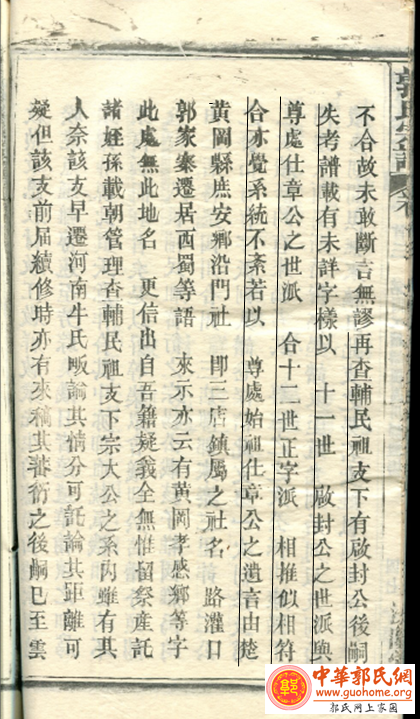 不合故未敢斷言無謬再查輔民祖支下有啟封公後嗣
失考譜載有未詳字樣以 十一世 啟封公之世派與
尊處仕章公之世派 合十二世正字派 相推似相符
合亦覺系統不紊若以 尊處始祖仕章公之遺言由楚
黃岡縣庶安鄉沿門社 即三店鎮屬之社名 路灌口
郭家寨遷居西蜀等語 來示亦云有黃岡孝感鄉等字
此處無此地名 更信出自吾籍疑義全無惟留祭產託
諸姪孫載朝管理查輔民祖支下宗大公之系內雖有其
人奈該支早遷河南牛氏畈論其情分可託論其距離可
疑但該支前屆續修時亦有來稿其蕃衍之後嗣已至雲
郭氏宗譜
中華郭氏網
www.guohome.org
郭氏網上家園